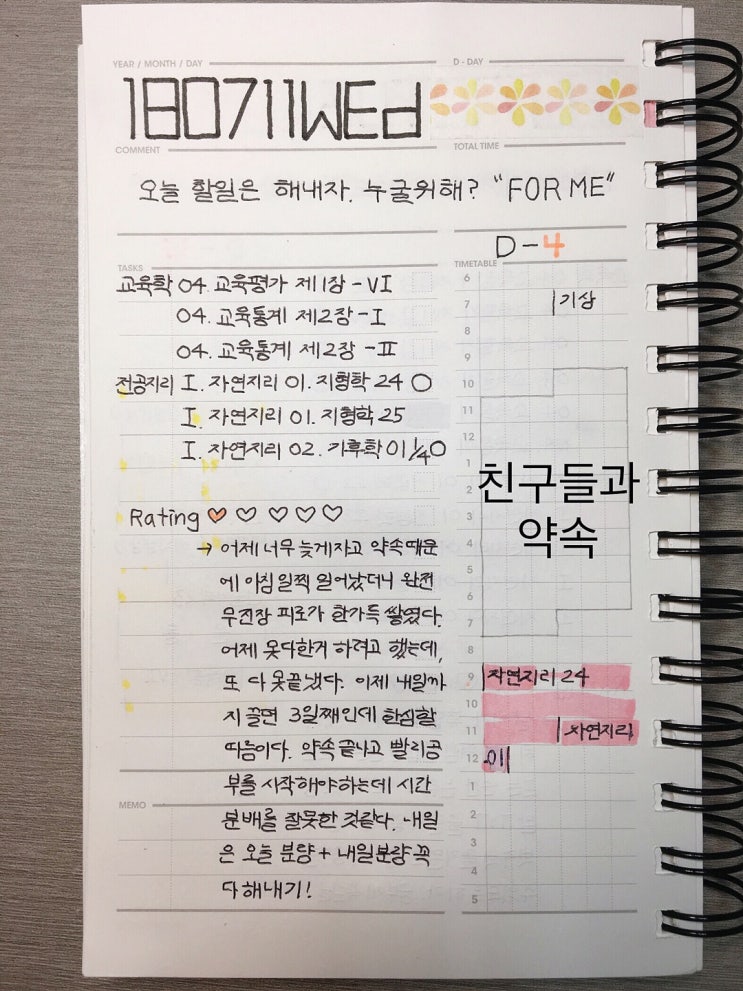 YEAR / MONTH / DAY
D - DAY
180711WEd
COMMENT
TOTAL TIME
오늘 할일은 해내자. 누굴위해? "FOR ME"
D-4
TASKS
TIMETABLE
교육학 04. 교육평가 제1장 - VI
04. 교육통계 제2장 - I
04. 교육통계 제2장 - II
전공지리 I. 자연지리 01. 지형학 24 O
I. 자연지리 01. 지형학 25
I. 자연지리 02. 기후학 01 1/4 O
Rating ♥ ♡ ♡ ♡ ♡
→ 어제 너무 늦게자고 약속때문
에 아침 일찍 일어났더니 완전
무진장 피로가 한가득 쌓였다.
어제 못다한거 하려고 했는데,
또 다 못끝냈다. 이제 내일까
지 끌면 3일째인데 한심할
따름이다. 약속 끝나고 빨리공
부를 시작해야하는데 시간
분배를 잘못한 것같다. 내일
은 오늘 분량 + 내일분량 꼭
다해내기!
MEMO
6
7 기상
8
9
10
11
12
1
2
친구들과
약속
3
4
5
6
7
8
9 자연지리 24
10
11 자연지리
12 01
1
2
3
4
5